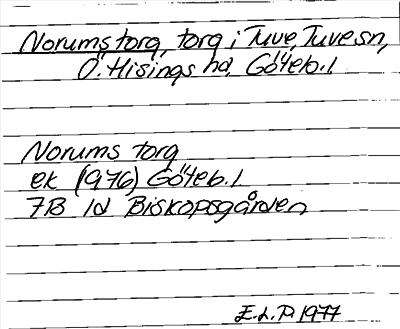 Norums torg, torg i Tuve, Tuve sn,
Ö. Hisings hd, Göteb. l
Norums torg
ek (1976) Göteb. l
7B 1d Biskopsgården
E.L.P 1977